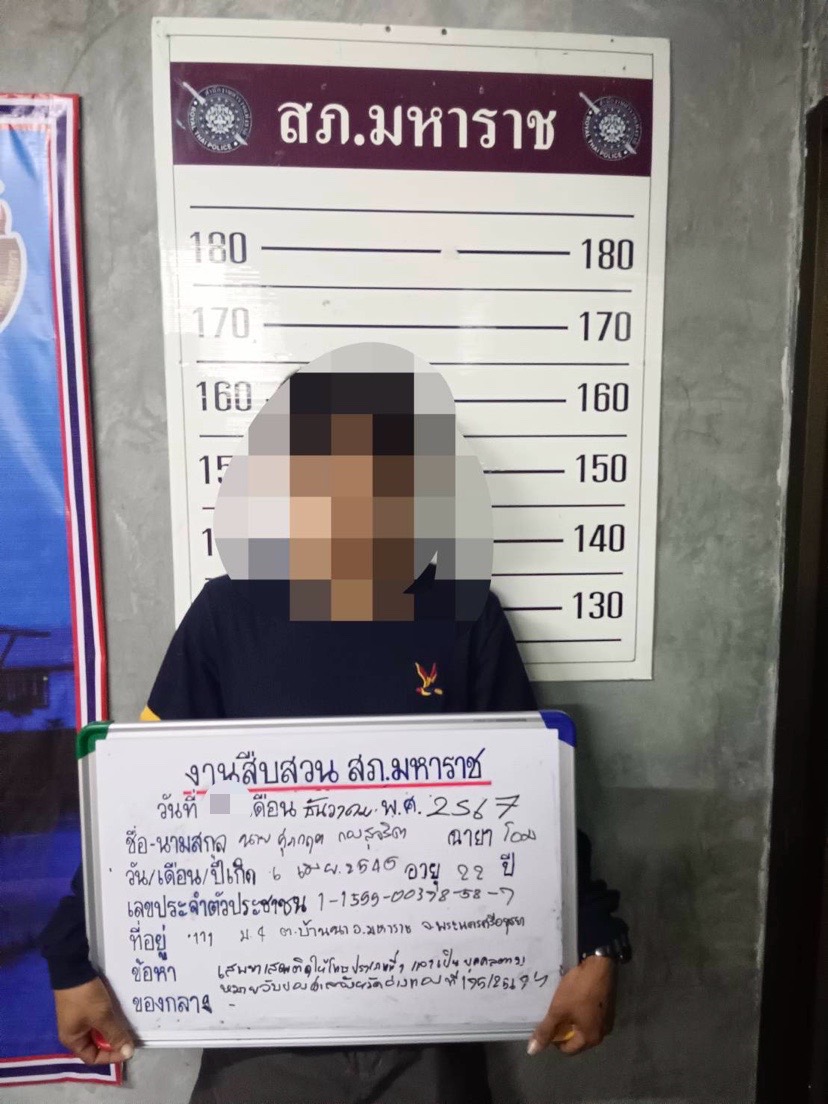 สภ.มหาราช
ROYAL THAI POLICE
ROYAL THAI POLICE
180 180
170 170
160 160
150
140
130
งานสืบสวน สภ.มหาราช
วันที่ เดือน ธันวาคม พ.ศ. 2567
ชื่อ-นามสกุล นาย ฉายา โอม
วัน/เดือน/ปีเกิด 2545 อายุ 22 ปี
เลขประจำตัวประชาชน
ที่อยู่ ม.4 ต.บ้านนา อ.มหาราช จ.พระนครศรีอยุธยา
ข้อหา เสพยาเสพติดให้โทษประเภทที่ 1 และเป็นบุคคลตาม
หมายจับของศาลจังหวัดอ่างทองที่
ของกลาง -